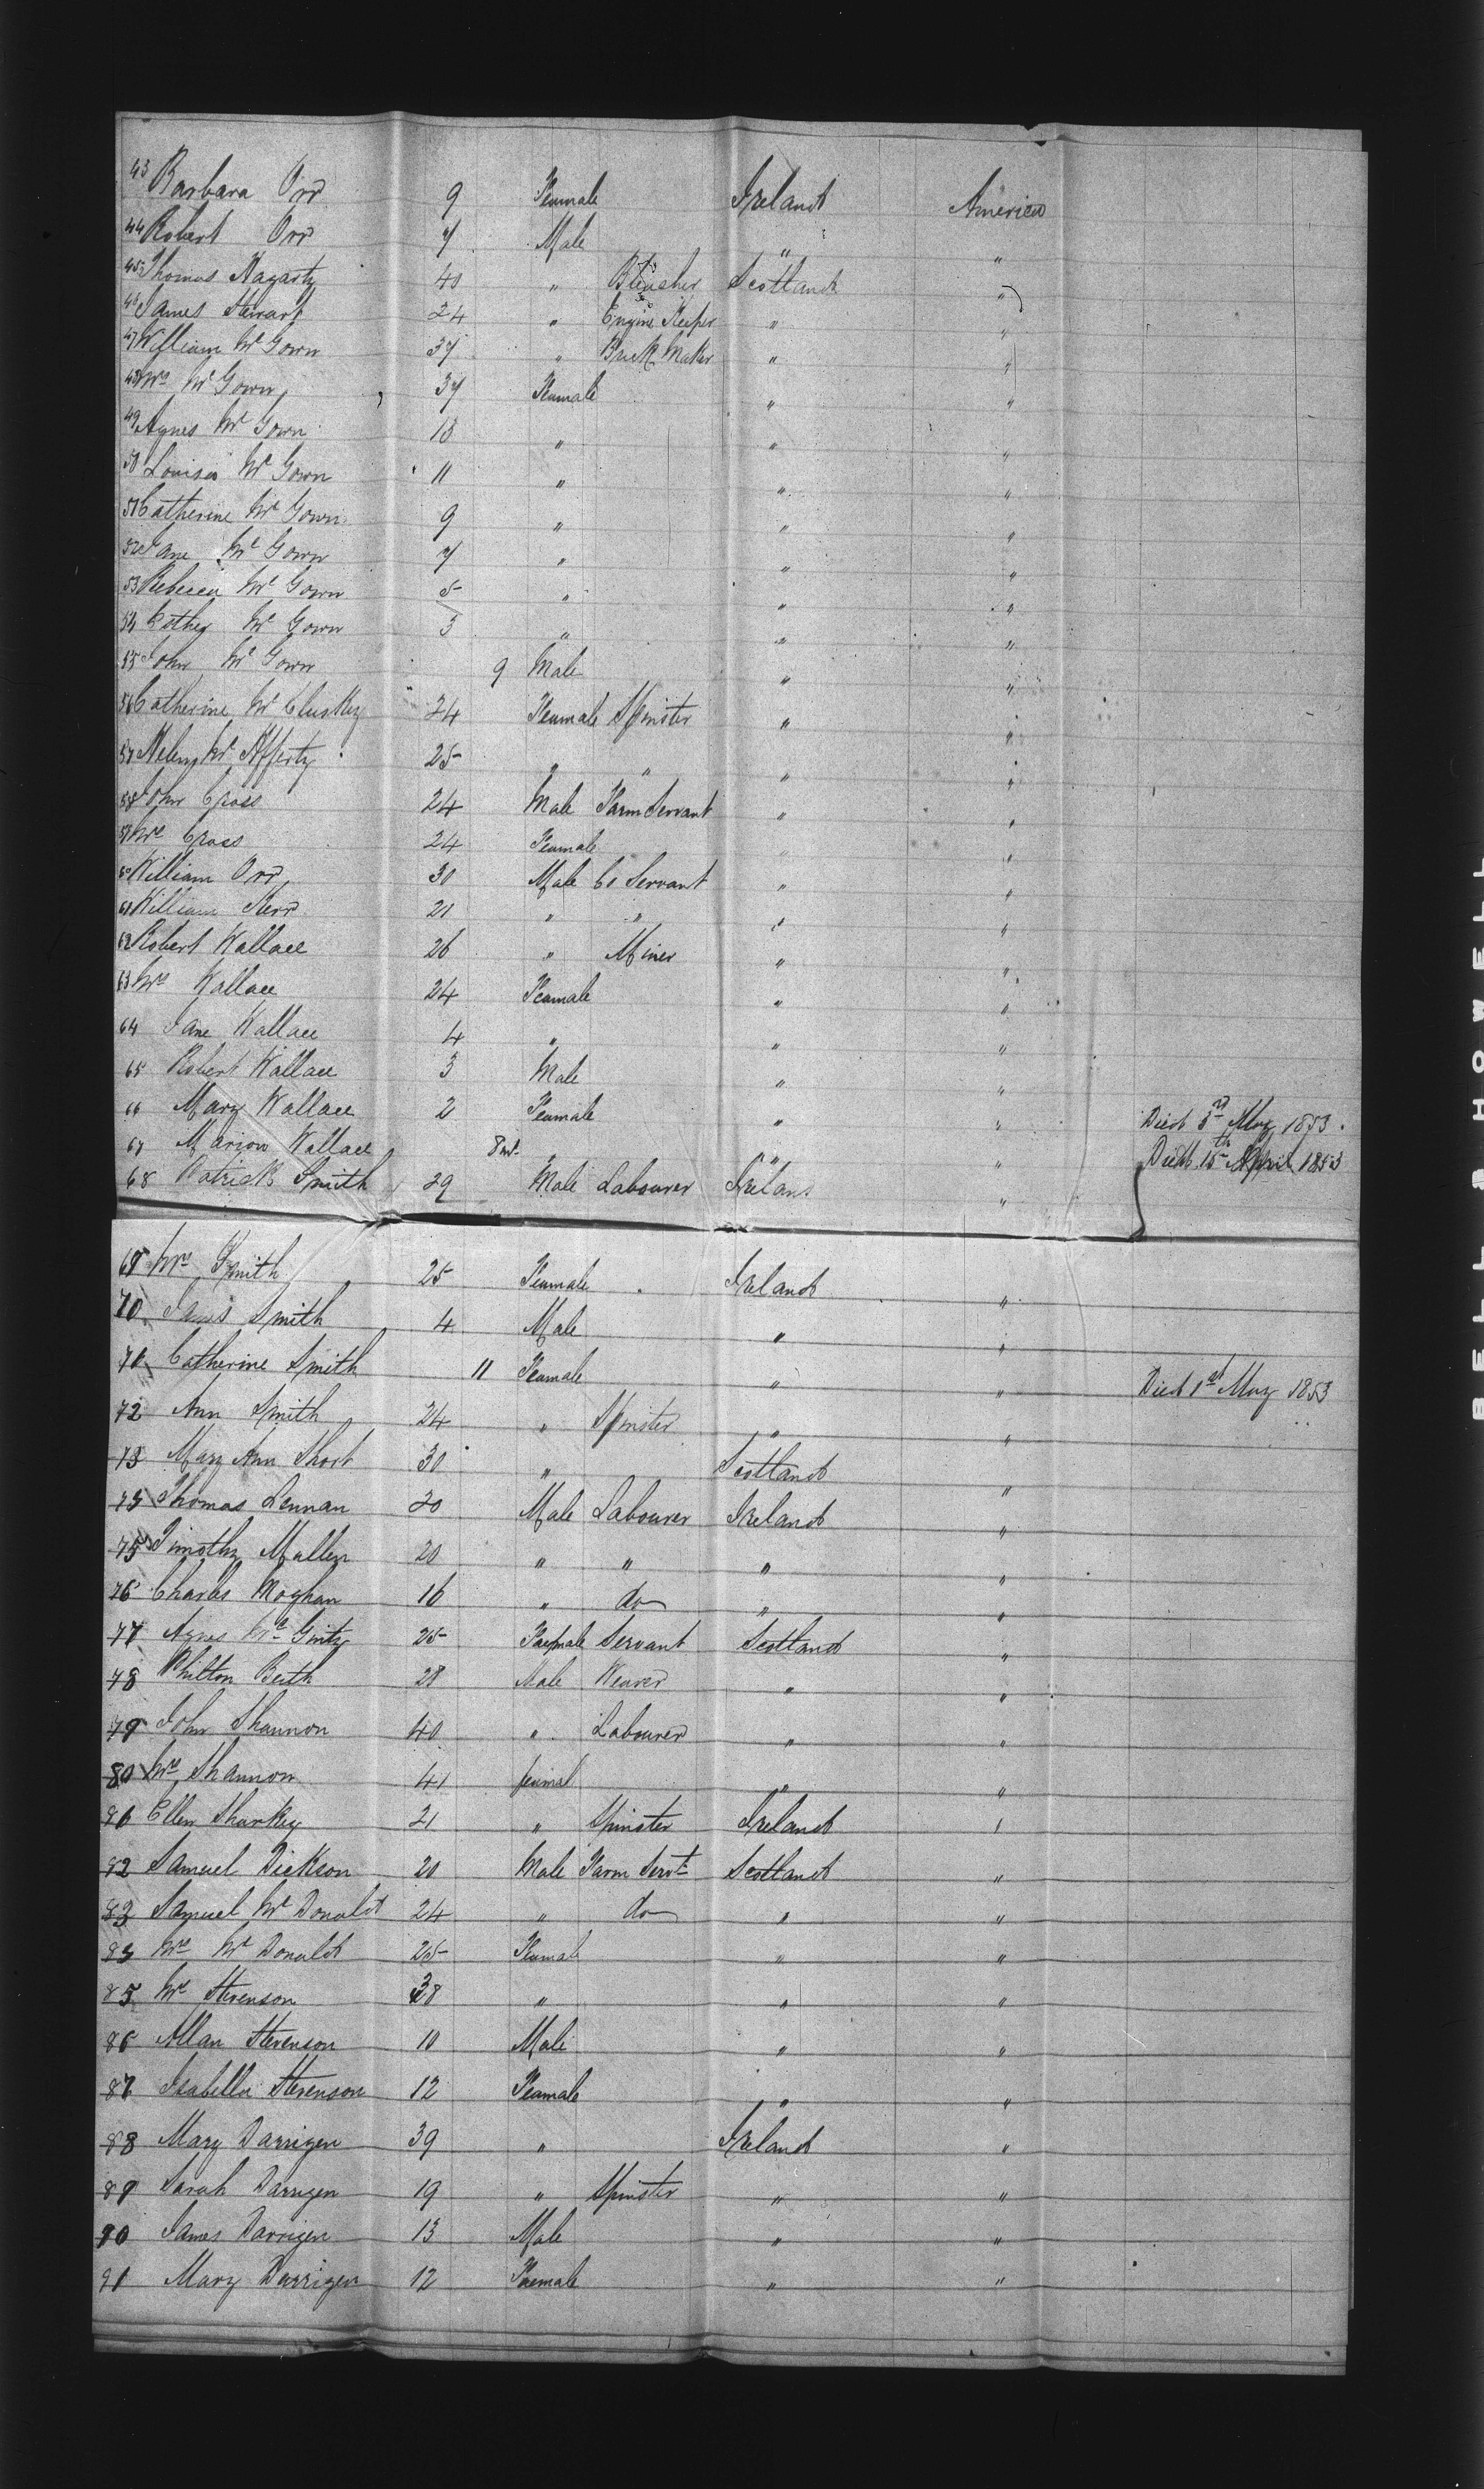 43 Barbara Orr 9 Feamale Ireland America
44 Robert Orr 7 Male " "
45 Thomas Hagarty 40 " Bleacher Scotland "
46 James Stewart 24 " Engine Keeper " "
47 William Mc Gown 37 " Brick Maker " "
48 Mrs Mc Gown 37 Feamale " "
49 Agnes Mc Gown 13 " " "
50 Louisa Mc Gown 11 " " "
51 Catherine Mc Gown 9 " " "
52 Jane Mc Gown 7 " " "
53 Rebecca Mc Gown 5 " " "
54 Esther Mc Gown 3 " " "
55 John Mc Gown 9 Male " "
56 Catherine Mc Cluskey 24 Feamale Spinster " "
57 Helen Mc Afferty 25 " " " "
58 John Cross 24 Male Farm Servant " "
59 Mrs Cross 24 Feamale " "
60 William Orr 30 Male Co Servant " "
61 William Kerr 21 " " " "
62 Robert Wallace 26 " Miner " "
63 Mrs Wallace 24 Feamale " "
64 Jane Wallace 4 " " "
65 Robert Wallace 3 Male " "
66 Mary Wallace 2 Feamale " " Died 3rd May 1853.
67 Marion Wallace 8 mt. " " " Died 15th April 1853
68 Patrick Smith 29 Male Labourer Ireland "
69 Mrs Smith 25 Feamale Ireland "
70 James Smith 4 Male " "
71 Catherine Smith 11 Feamale " " Died 1st May 1853
72 Ann Smith 24 " Spinster " "
73 Mary Ann Short 30 " Scotland "
74 Thomas Lennan 20 Male Labourer Ireland "
75 Timothy Mullen 20 " " " "
76 Charles Moghan 16 " do " "
77 Agnes Mc Ginty 25 Feamale Servant Scotland "
78 Philton Beith 28 Male Weaver " "
79 John Shannon 40 " Labourer " "
80 Mrs Shannon 41 femal " "
81 Ellen Sharkey 21 " Spinster Ireland "
82 Samuel Dickson 20 Male Farm Servt Scotland "
83 Samuel Mc Donald 24 " do " "
84 Mrs Mc Donald 25 Feamale " "
85 Mrs Stevenson 38 " " "
86 Allan Stevenson 10 Male " "
87 Isabella Stevenson 12 Feamale " "
88 Mary Darrigen 39 " Ireland "
89 Sarah Darrigen 19 " Spinster " "
90 James Darrigen 13 Male " "
91 Mary Darrigen 12 Feamale " "
BELL & HOWELL